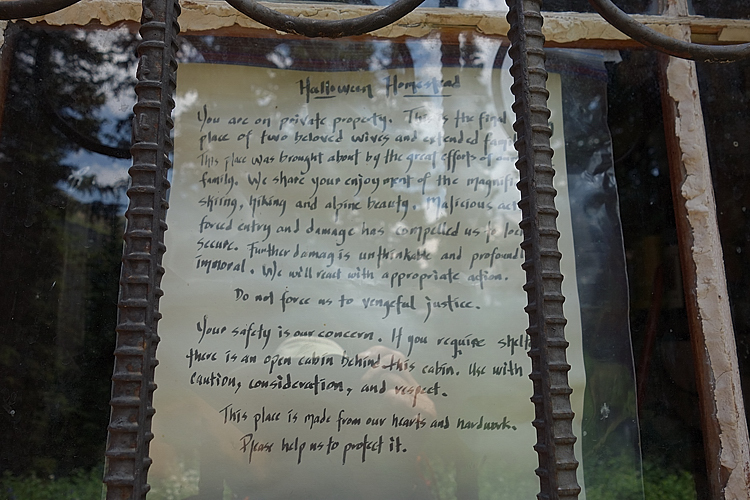 Halloween Homestead
You are on private property. This is the final
place of two beloved wives and extended fam
This place was brought about by the great efforts of
family. We share your enjoyment of the magnifi
skiing, hiking and alpine beauty. Malicious act
forced entry and damage has compelled us to loc
secure. Further damag is unthinkable and profound
immoral. We will react with appropriate action.
Do not force us to vengeful justice.
Your safety is our concern. If you require shelt
there is an open cabin behind this cabin. Use with
caution, consideration, and respect.
This place is made from our hearts and hardwork.
Please help us to protect it.